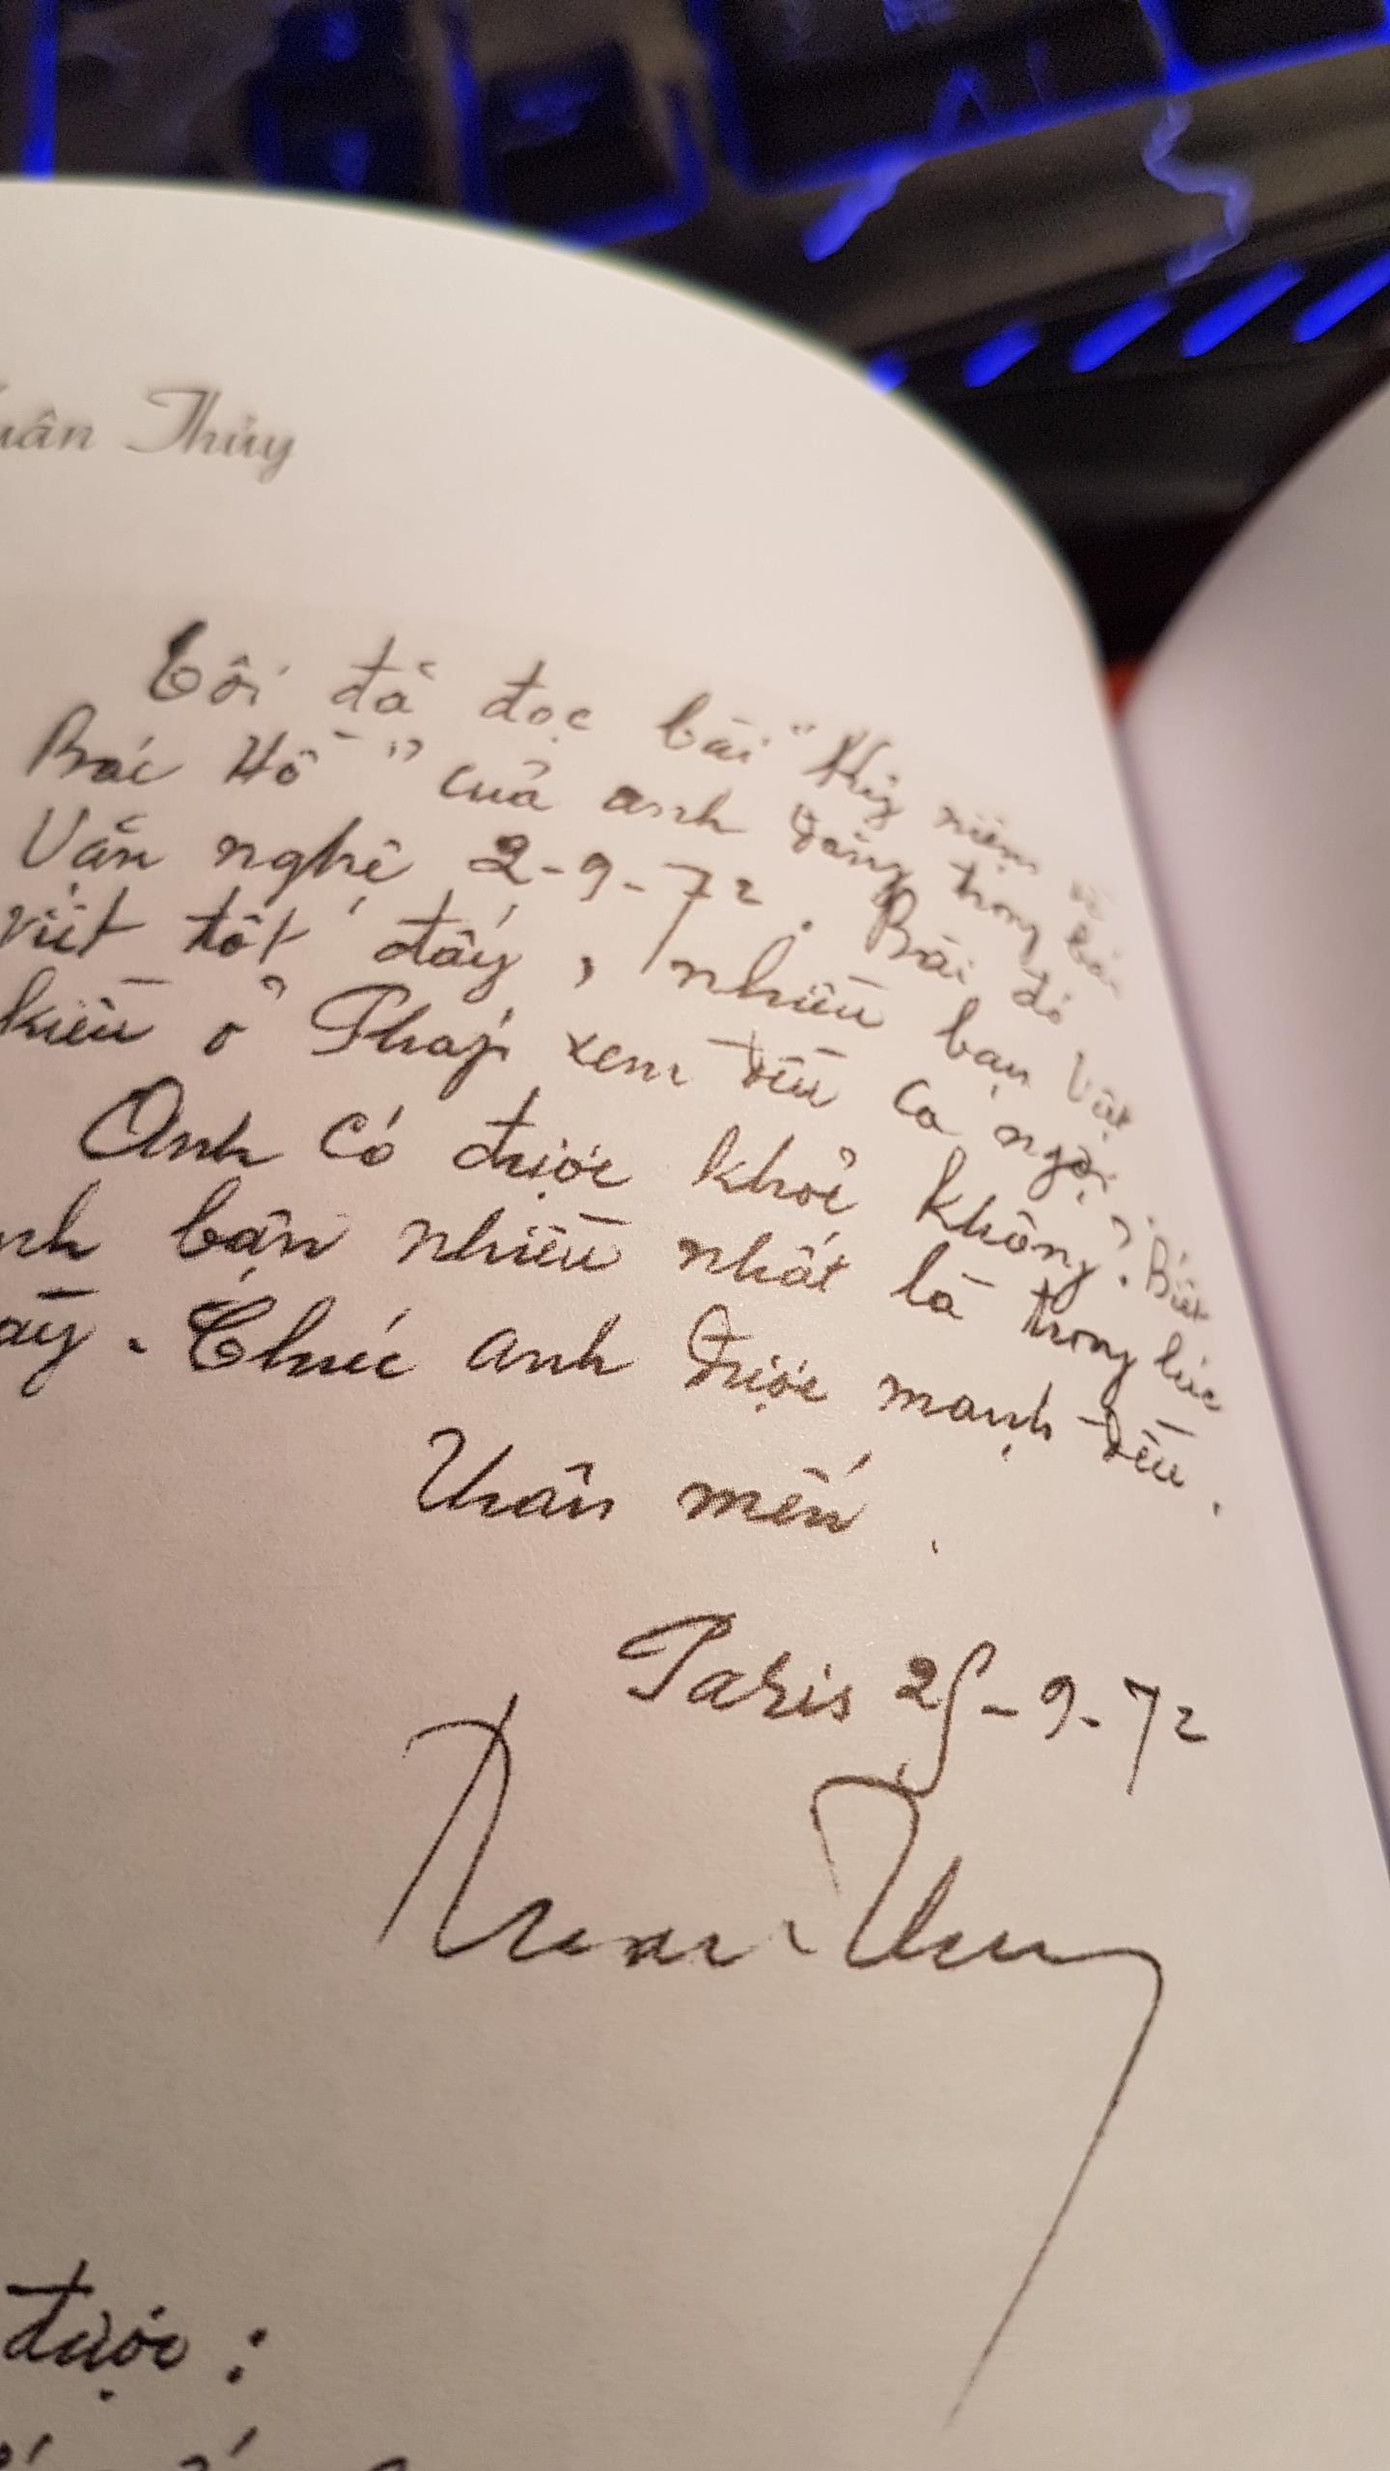 uân Thủy
Tôi đã đọc bài "Kỷ niệm về
Bác Hồ" của anh đăng trong báo
Văn nghệ 2-9-72. Bài đó
viết tốt đấy, nhiều bạn Việt
kiều ở Pháp xem đều ca ngợi.
Anh có được khỏe không? Biết
nh bận nhiều nhất là trong lúc
ày. Chúc anh được mạnh đều.
Thân mến.
Paris 25-9-72
Xuan Thuy
được: